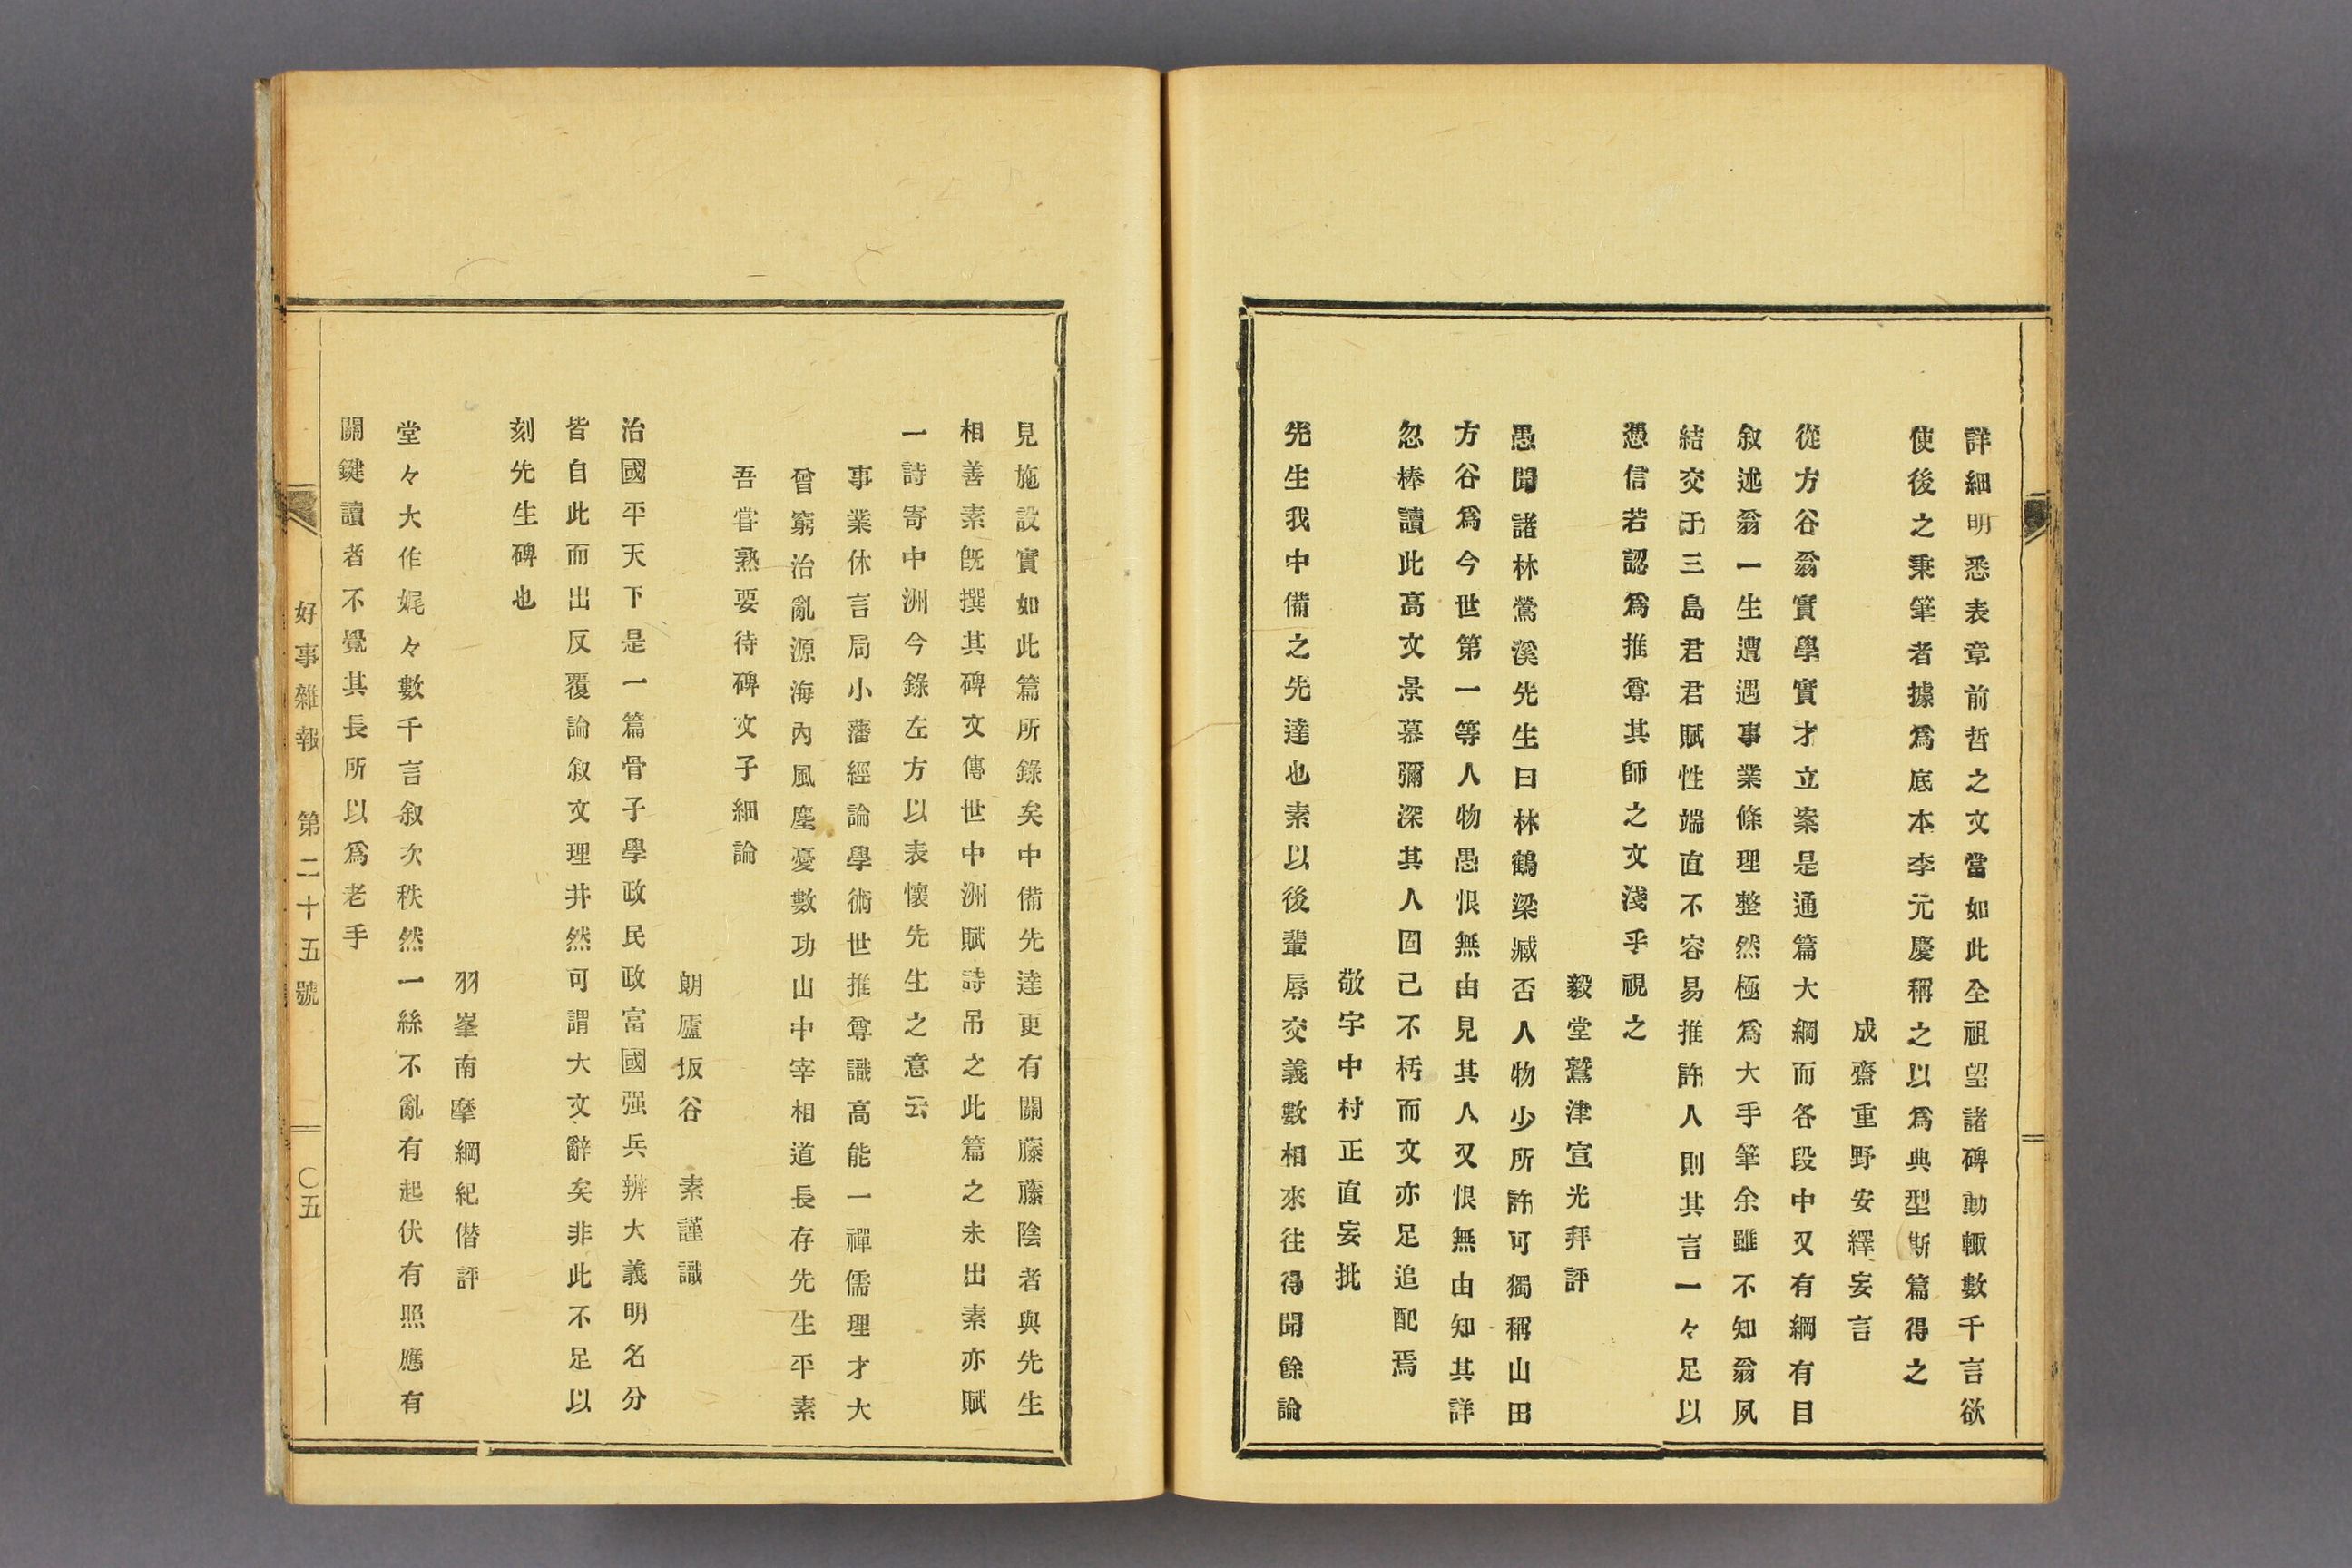 詳細明悉表章前哲之文當如此全祖望諸碑動輙數千言欲
使後之秉筆者據爲底本李元慶稱之以爲典型斯篇得之
成齋重野安繹妄言
從方谷翁實學實才立案是通篇大綱而各段中又有綱有目
叙述翁一生遭遇事業條理整然極爲大手筆余雖不知翁夙
結交于三島君君賦性端直不容易推許人則其言一々足以
憑信若認爲推尊其師之文淺乎視之
毅堂鷲津宣光拜評
愚聞諸林鶯溪先生曰林鶴梁臧否人物少所許可獨稱山田
方谷爲今世第一等人物愚恨無由見其人又恨無由知其詳
忽棒讀此高文景慕彌深其人固己不朽而文亦足追配焉
敬宇中村正直妄批
先生我中備之先達也素以後輩辱交義數相來往得聞餘論
見施設實如此篇所錄矣中備先達更有關藤藤陰者與先生
相善素旣撰其碑文傳世中洲賦詩吊之此篇之未出素亦賦
一詩寄中洲今錄左方以表懷先生之意云
事業休言局小藩經論學術世推尊識高能一禪儒理才大
曾窮治亂源海內風塵憂數功山中宰相道長存先生平素
吾嘗熟要待碑文子細論
朗廬坂谷　素謹識
治國平天下是一篇骨子學政民政富國强兵辨大義明名分
皆自此而出反覆論叙文理井然可謂大文辭矣非此不足以
刻先生碑也
羽峯南摩綱紀僭評
堂々大作娓々數千言叙次秩然一絲不亂有起伏有照應有
關鍵讀者不覺其長所以爲老手
好事雜報　第二十五號　〇五